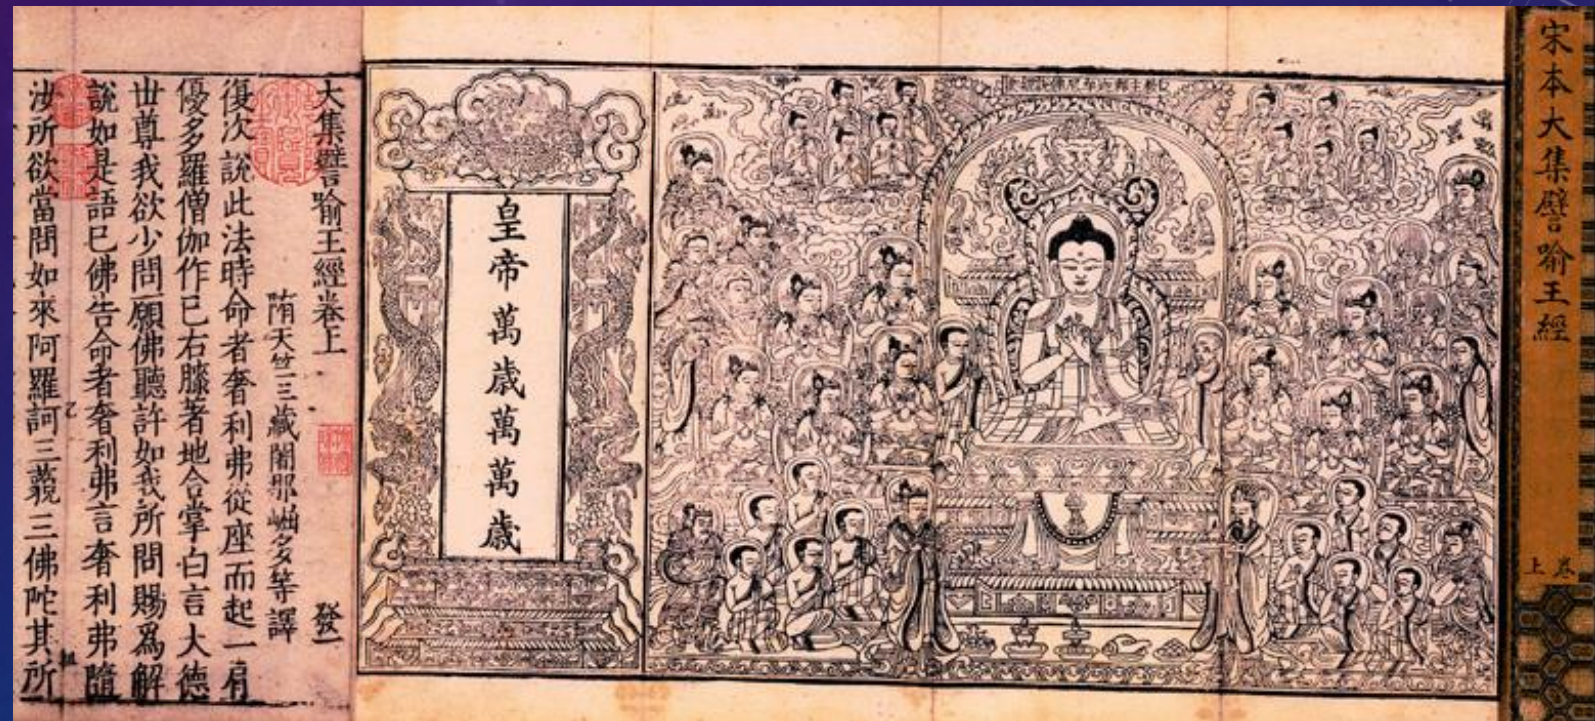 宋本大集譬喻王經
卷上
皇帝萬歲萬萬歲
大集譬喻王經卷上 發一
隋天竺三藏闍那崛多等譯
復次說此法時命者奢利弗從座而起一肩
優多羅僧伽作已右膝著地合掌白言大德
世尊我欲少問願佛聽許如我所問賜爲解
說如是語已佛告命者奢利弗言奢利弗隨
汝所欲當問如來阿羅訶三藐三佛陀其所